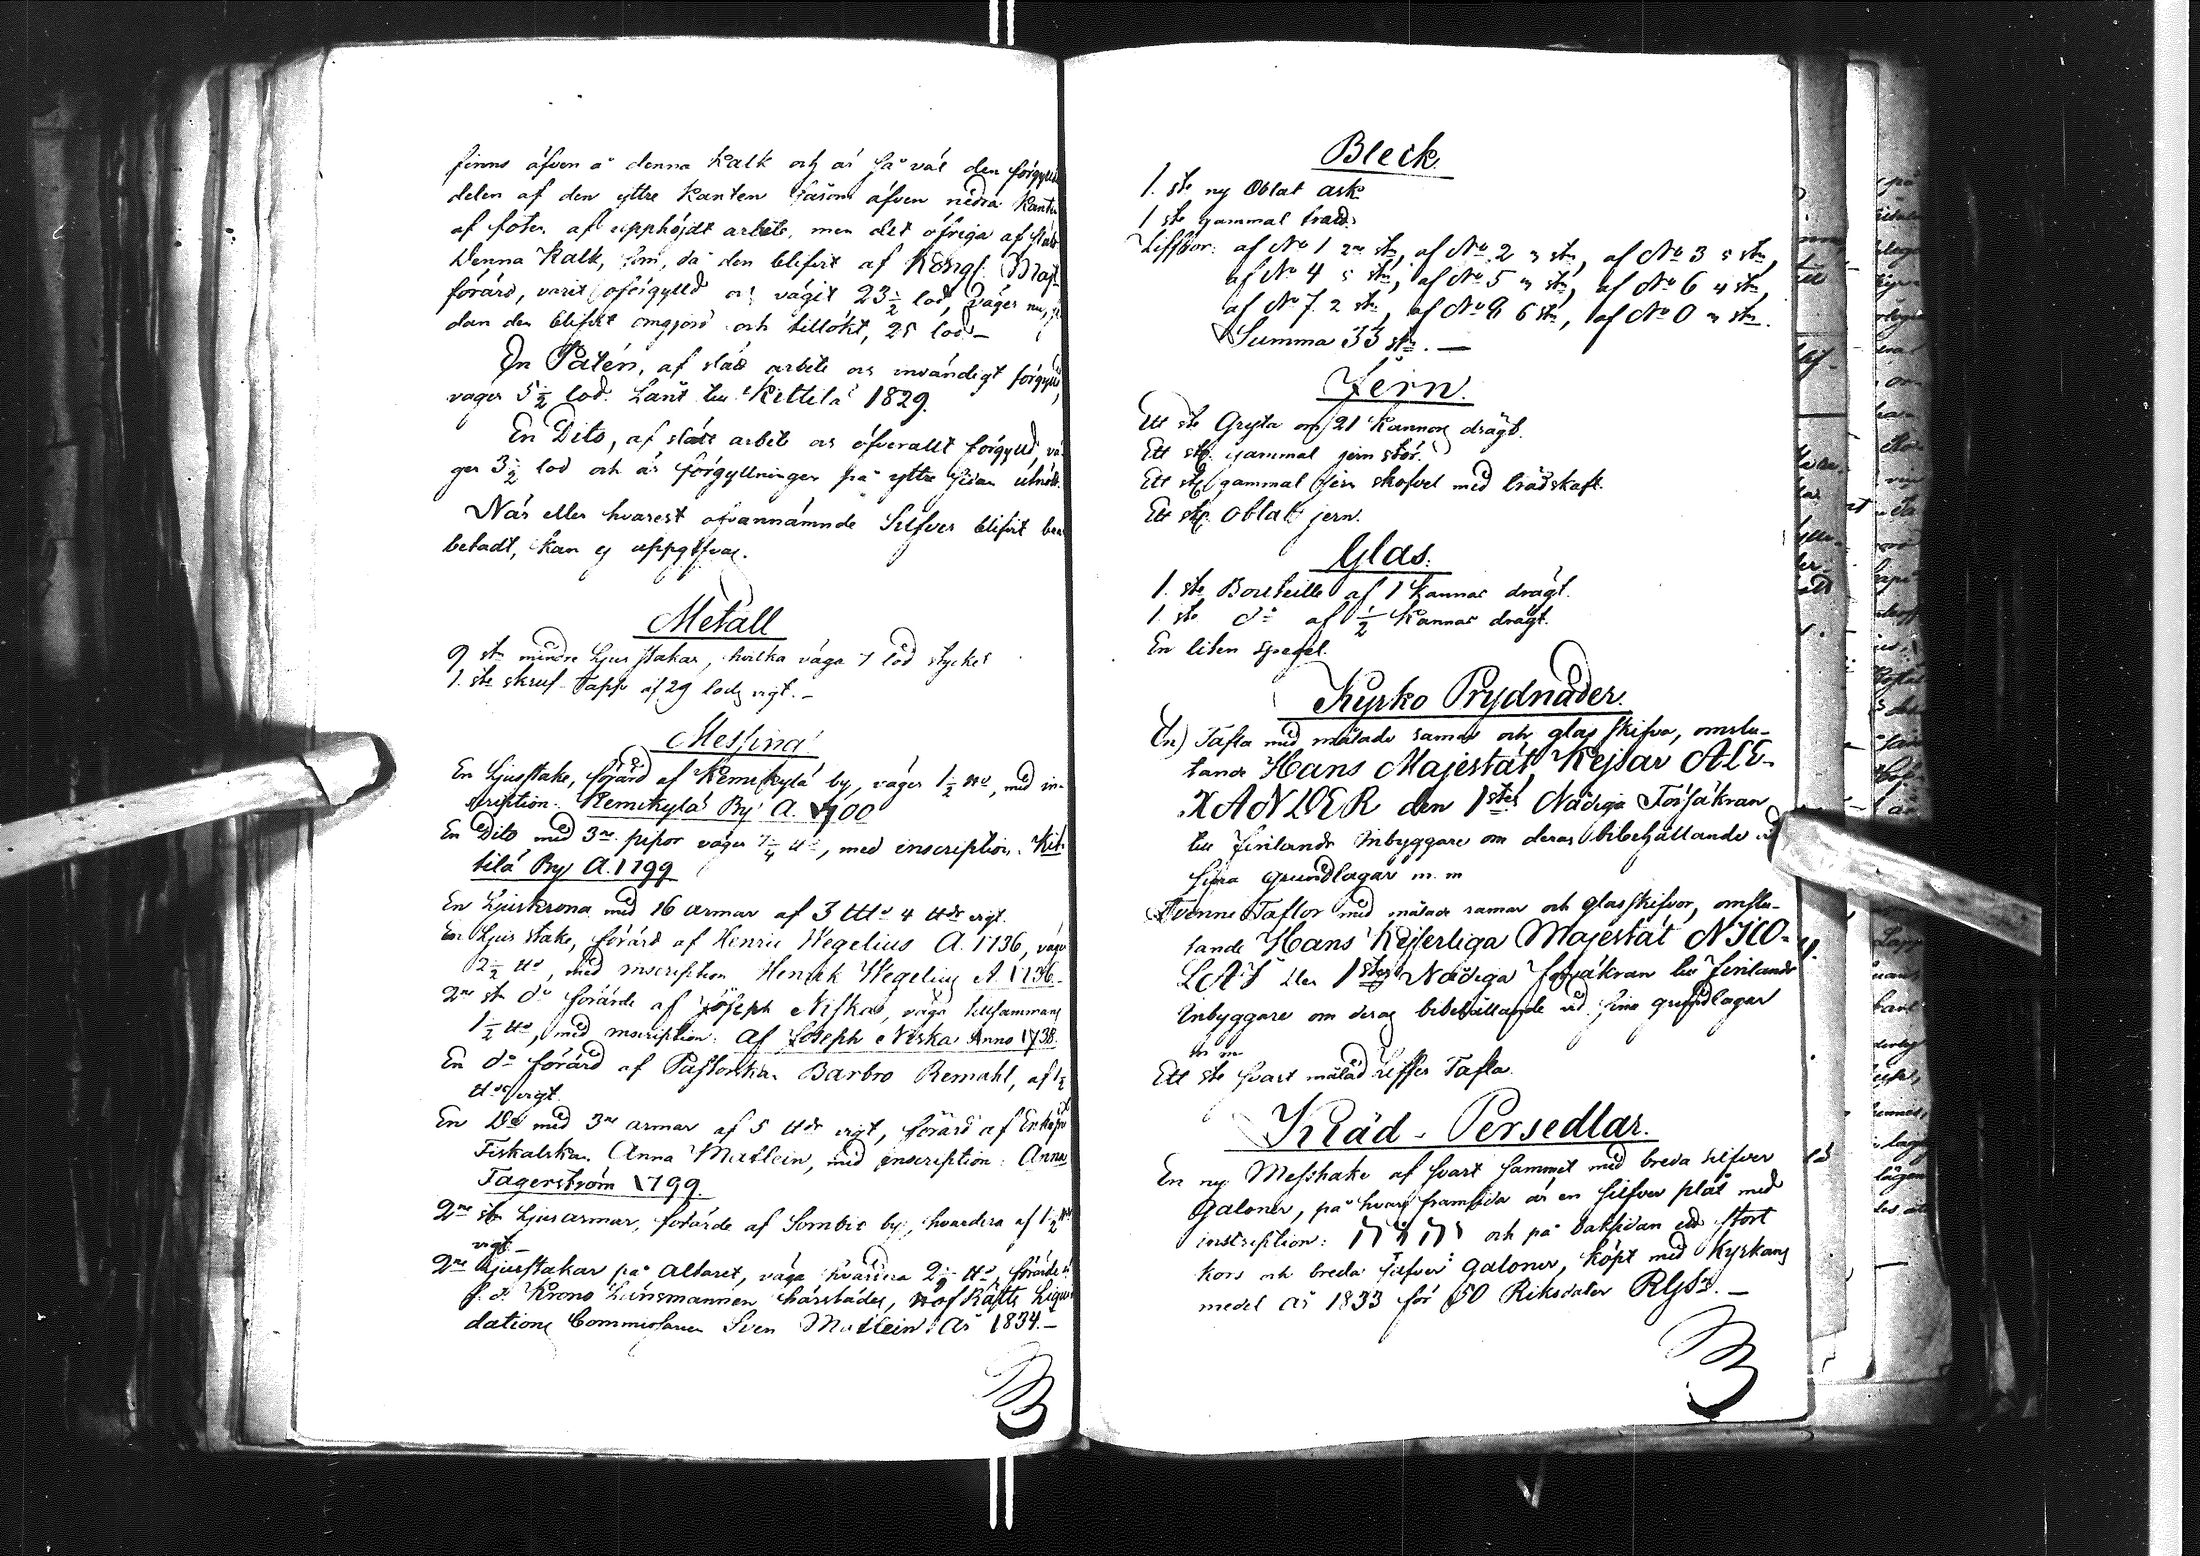 finns äfven å denna Kalk och är så väl den förgyllda
delen af den yttre Kanten såsom äfven nedra Kanten
af foten af upphöjdt arbete, men det öfriga af slätt
Denna Kalk, som, då den blifvit af Kongl. Maj:t
förärd, varit oförgylld och vägit 23 1/2 lod, väger nu, se-
dan den blifvit omgjord och tillökt, 25 lod –
En Patén, af slät arbete och invändigt förgylld,
väger 5 1/2 lod. Lånt till Kittilä 1829.
En Dito, af slätt arbete och öfverallt förgylld, vä-
ger 3 1/2 lod och är förgyllningen på yttre sidan utnött.
När eller hvarest ofvannämnde Silfver blifvit bear-
betadt, kan ej uppgifvas.
Metall
9 st. mindre Ljusstakar, hvilka väga 7 lod stycket
1. st. skruf-Tapp af 29 lods vigt. –
Messing
En Ljusstake, förärd af Kemikylä by, väger 1 1/2 ℔, med in-
scription. Kemikylä By A. 1700
En Dito med 3ne pipor väger 7 1/4 ℔, med inscription. Kit-
tilä By A. 1799
En Ljuskrona med 16 armar af 3 L℔ 4 ℔s vigt.
En Ljus stake, förärd af Henric Wegelius A. 1736, väger
2 1/2 ℔, med inscription Henrik Wegelius A 1736.
2ne st. do förärde af Joseph Niska, väga tillsammans
1 1/2 ℔, med inscription: af Joseph Niska Anno 1738.
En do förärd af Pastorskan Barbro Remahl, af 1 1/2
℔s vigt.
En Do med 3ne armar af 5 ℔s vigt, förärd af Enkefru
Fiskalskan Anna Matlein, med inscription: Anna
Fagerström 1799.
2ne st. Ljusarmar, förärde af Sombio by, hvardera af 1 1/2 ℔s
vigt –
2ne Ljusstakar på Altaret, väga hvardera 2 1/2 ℔, förärde af
f. d. Krono Länsmannen härstädes, Hof Rätts Liqui-
dations Commissarien Sven Matlein År 1834. –
Bleck.
1. st. ny Oblat ask
1 st. gammal
Siffror: af No 1 2ne st., af No 2 3 st., af No 3 5 st.,
af No 4 5 st., af No 5 3 st., af No 6 4 st.,
af No 7. 2 st., af No 8 6 st., af No 0 3 st.
Summa 33 st. –
Jern.
Ett st. Gryta om 21 Kannors drägt.
Ett st. gammal jern stör.
Ett st. gammal jern skofvel med trädskaft.
Ett st. Oblat jern.
Glas.
1. st. Bouteille af 1 Kannas drägt.
1. st. do af 1/2 Kannas drägt.
En liten spegel.
Kyrko Prydnader.
En Tafla med målade ramar och glas skifva, omslu-
tande Hans Majestät Kejsar ALE-
XANDER den 1stes Nådiga Försäkran
till Finlands Inbyggare om deras bibehållande vid
sina grundlagar m. m
Tvenne Taflor med målade ramar och glas skifvor, omslu-
tande Hans Kejserliga Majestät NICO-
LAI den 1stes Nådiga försäkran till Finlands
Inbyggare om deras bibehållande vid sina grundlagar
m m
Ett st. svart målad siffer Tafla.
Kläd-Persedlar.
En ny Messhake af svart sammet med breda silfver
galoner, på hvars framsida är en silfver plåt med
inscription: och på baksidan ett stort
kors och breda silfver galoner, köpt med Kyrkans
medel år 1833 för 50 Riksdaler Rgds. –